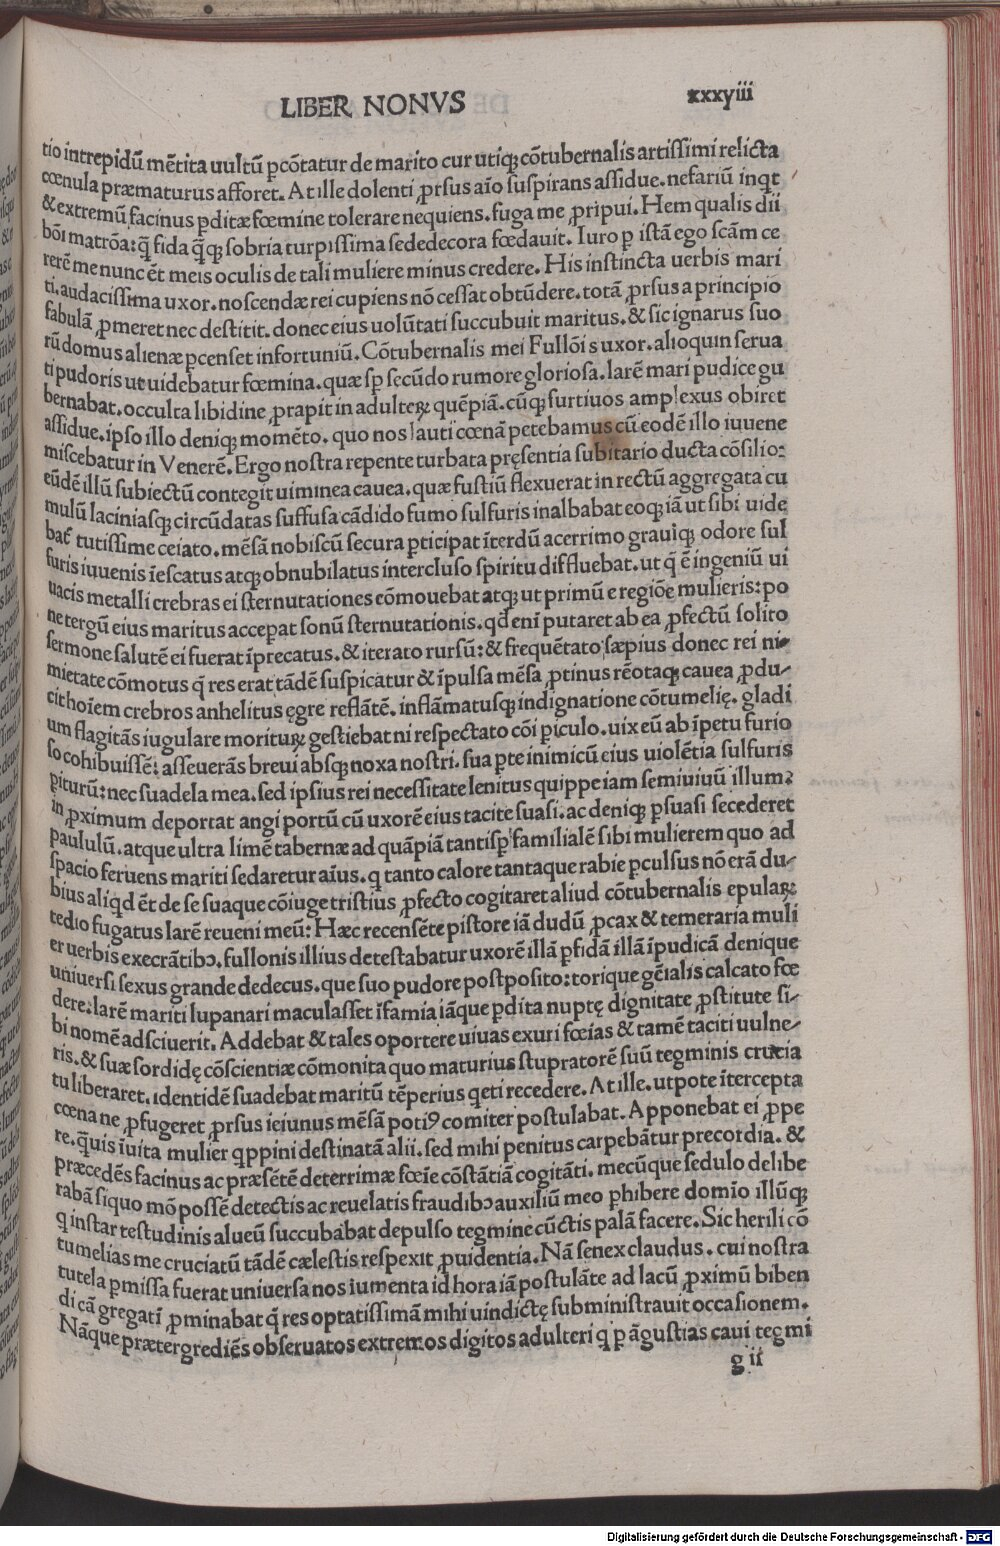 LIBER NONVS xxxviii
tio intrepidū mētita uultū ꝑcōtatur de marito cur utiqꝫ cōtubernalis artissimi relicta
cœnula præmaturus afforet. At ille dolenti ꝓrsus aīo suspirans assidue. nefariū inqt
& extremū facinus ꝑditæ fœmine tolerare nequiens. fuga me ꝓripui. Hem qualis dii
bōi matrōa: q̄ fida q̄qꝫ sobria turpissima se dedecora fœdauit. Iuro ꝑ istā ego scām ce
rerē me nunc ēt meis oculis de tali muliere minus credere. His instincta uerbis mari
ti. audacissima uxor. noscendæ rei cupiens nō cessat obtūdere. totā ꝓrsus a principio
fabulā ꝓmeret nec destitit. donec eius uolūtati succubuit maritus. & sic ignarus suo
rū domus alienæ ꝑcenset infortuniū. Cōtubernalis mei Fullōis uxor. alioquin serua
ti pudoris ut uidebatur fœmina. quæ sꝑ secūdo rumore gloriosa. larē mari pudice gu
bernabat. occulta libidine ꝓrapit in adulteꝝ quēpiā. cūqꝫ furtiuos amplexus obiret
assidue. ipso illo deniqꝫ momēto. quo nos lauti cœnā petebamus cū eodē illo iuuene
miscebatur in Venerē. Ergo nostra repente turbata pręsentia subitario ducta cōsilio:
eūdē illū subiectū contegit uiminea cauea. quæ fustiū flexuerat in rectū aggregata cu
mulū laciniasqꝫ circūdatas suffusa cādido fumo sulfuris inalbabat eoqꝫ iā ut sibi uide
bat̄ tutissime ceiato. mēsā nobiscū secura ꝑticipat īterdū acerrimo grauiqꝫ odore sul
furis iuuenis īescatus atqꝫ obnubilatus intercluso spiritu diffluebat. ut q̄ ē ingeniū ui
uacis metalli crebras ei sternutationes cōmouebat atqꝫ ut primū e regiōe mulieris: po
ne tergū eius maritus acceꝑat sonū sternutationis. qd enī putaret ab ea ꝓfectū solito
sermone salutē ei fuerat īprecatus. & iterato rursū: & frequētato sæpius donec rei ni-
mietate cōmotus q̄ res erat tādē suspicatur & īpulsa mēsa ꝓtinus rēotaqꝫ cauea ꝓdu-
cit hoīem crebros anhelitus ęgre reflātē. inflāmatusqꝫ indignatione cōtumelię. gladi
um flagitās iugulare morituꝝ gestiebat ni respectato cōi ꝑiculo. uix eū ab īpetu furio
so cohibuissē: asseuerās breui absqꝫ noxa nostri. sua ꝑte inimicū eius uiolētia sulfuris
ꝑiturū: nec suadela mea. sed ipsius rei necessitate lenitus quippe iam semiuiuū illum:
in ꝓximum deportat angiportū cū uxorē eius tacite suasi. ac deniqꝫ ꝑsuasi secederet
paululū. atque ultra limē tabernæ ad quāpiā tantisꝑ familialē sibi mulierem quo ad
spacio feruens mariti sedaretur aīus. q tanto calore tantaque rabie ꝑculsus nō erā du-
bius aliqd ēt de se suaque cōiuge tristius ꝓfecto cogitaret aliud cōtubernalis epulaꝝ:
tedio fugatus larē reueni meū: Hæc recensēte pistore iā dudū ꝓcax & temeraria muli
er uerbis execrātibꝰ. fullonis illius detestabatur uxorē illā ꝑfidā illā īpudicā denique
uniuersi sexus grande dedecus. que suo pudore postposito: torique gēialis calcato fœ
dere: larē mariti lupanari maculasset īfamia iāque ꝑdita nuptę dignitate ꝓstitute si-
bi nomē adsciuerit. Addebat & tales oportere uiuas exuri fœias & tamē taciti uulne-
ris. & suæ sordidę cōscientiæ cōmonita quo maturius stupratorē suū tegminis crucia
tu liberaret. identidē suadebat maritū tēperius qeti recedere. At ille. utpote ītercepta
cœna ne ꝓfugeret ꝓrsus ieiunus mēsā potiꝰ comiter postulabat. Apponebat ei ꝓpe
re. q̄uis īuita mulier qppini destinatā alii. sed mihi penitus carpebātur precordia. &
præcedēs facinus ac præsētē deterrimæ fœīe cōstātiā cogitāti. mecūque sedulo delibe
rabā si quo mō possē detectis ac reuelatis fraudibꝰ auxiliū meo ꝑhibere domīo illūqꝫ
q instar testudinis alueū succubabat depulso tegmine cūctis palā facere. Sic herili cō
tumelias me cruciatū tādē cælestis respexit ꝓuidentia. Nā senex claudus. cui nostra
tutela ꝑmissa fuerat uniuersa nos iumenta id hora iā postulāte ad lacū ꝓximū biben
di cā gregatī ꝓminabat q̄ res optatissimā mihi uindictę subministrauit occasionem.
Nāque prætergrediēs obseruatos extremos digitos adulteri q ꝑ āgustias caui tegmi
g ii
Digitalisierung gefördert durch die Deutsche Forschungsgemeinschaft - DFG